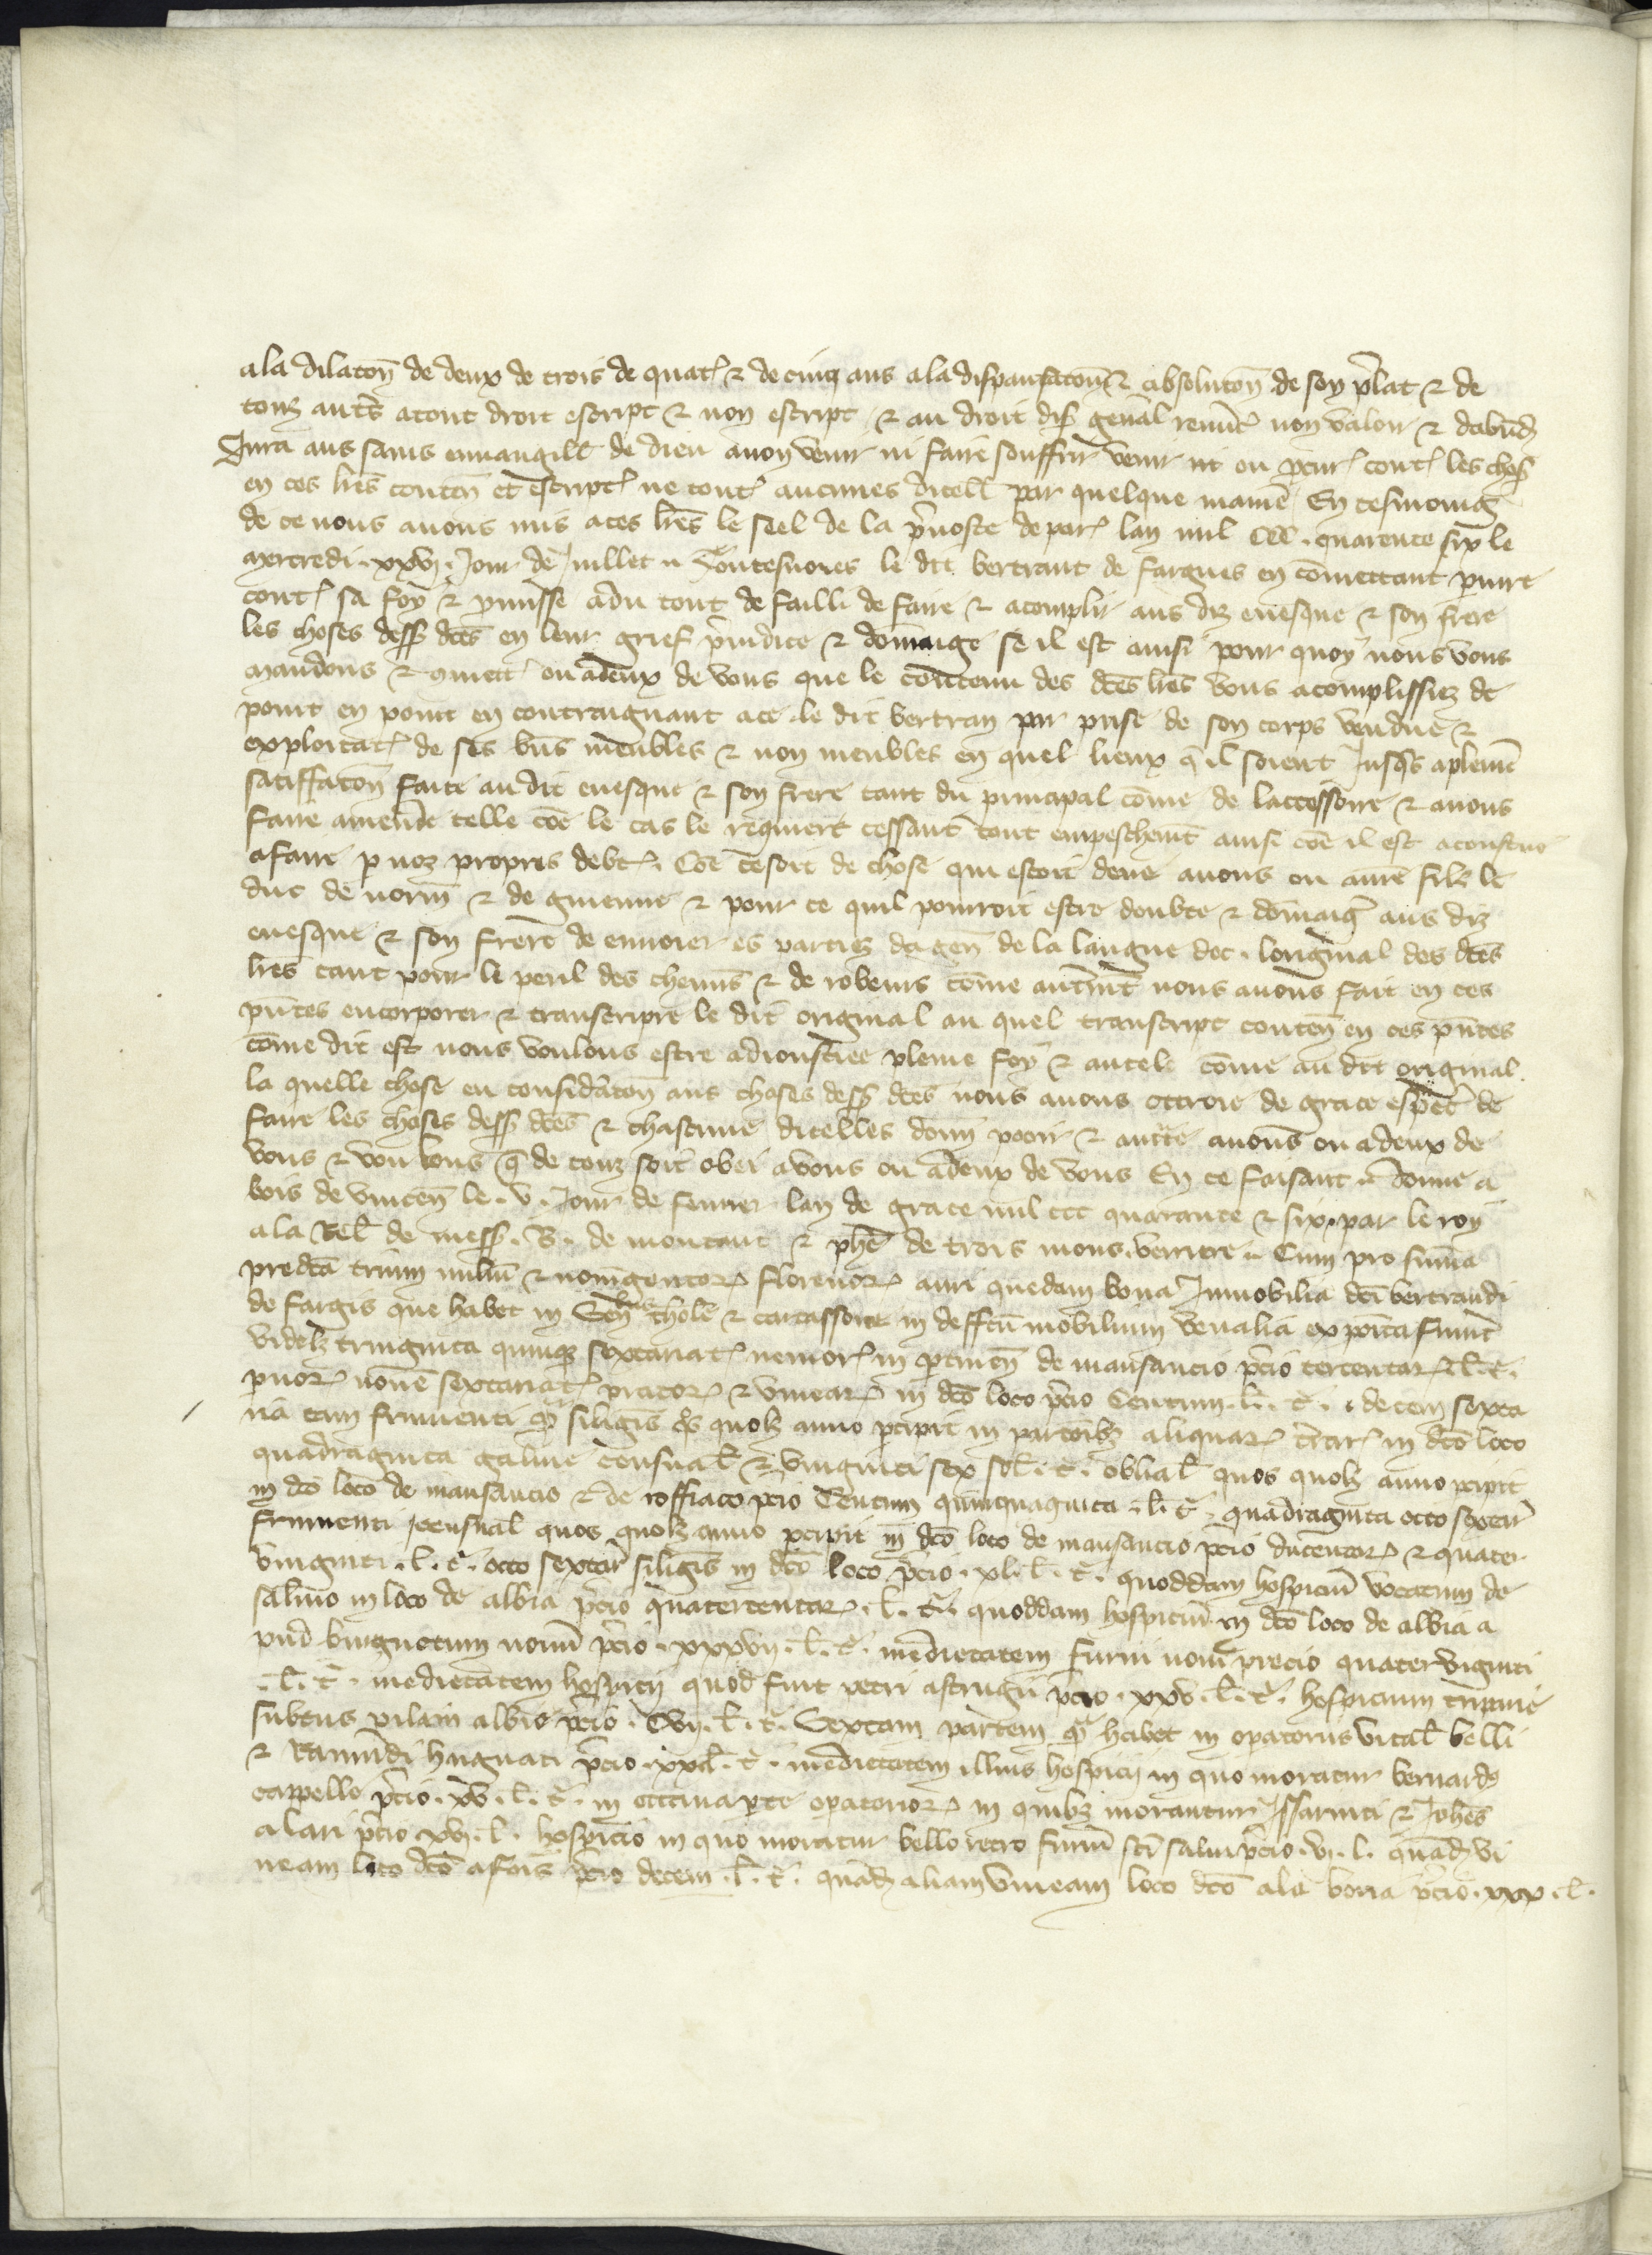 a la dilacon̄ de deux de trois de quat̾ ⁊ de cinq ans a la dispansacon̄ ⁊ absolucon̄ de son p̄lat ⁊ de
touz aut̾s a tout droit escript ⁊ non escript ⁊ au droit dis̾ gen̄al renūc̾ non valoir ⁊ dabūd̾
Jura aus sains euuangill̾ de dieu a non venir ni faire souffrir venir ni ou p̾cur̾ cont̾ les chos̾
en ces lr̄es conten̄ et escript̾ ne cont̾ aucunes dicell̾ par quelque manie̾ En tesmoing
de ce nous auons mis a ces lr̄es le seel de la p̾uoste de par̾ lan mil CCC. quarente six le
mercredi. xxvj. Jour de Juillet Toutesuoies le dit bertrant de fargues en cōmettant pariure
cont̾ sa foy ⁊ pmisse a du tout deffailli de faire ⁊ acomplir aus diz euesque ⁊ son frere
les choses dess̾ dc̄es en leur grief p̾iudice ⁊ dōmaige se il est ainsi pour quoy nous vous
mandons ⁊ cōmett̾ ou a deux de vous que le contenu des dc̄es lr̄es vous acomplissiez de
point en point en contraignant a ce le dit bertran par prise de son corps vendue ⁊
exploitat̾ de ses biēs meubles ⁊ non meubles en quel lieux q̄ il soient Jusq̾s a pleniere
satiffacon̄ faite au dit euesque ⁊ son frere tant du principal cōme de laccessoire ⁊ a nous
faire amende telle cōe le cas le requiert cessant tout empeschem̄t ainsi cōe il est acoustume
a faire p noz propres debt̾. Cōe ce soit de chose qui estoit deue a nous ou a nr̄e filz le
duc de norm̄ ⁊ de guienne ⁊ pour ce quil pourroit estre doubte ⁊ dōmaig̾ aus diz
euesque ⁊ son frere de enuoier es parties dagen̄ de la langue doc. loriginal des dc̄es
lr̄es tant pour le peril des chemis̄ ⁊ de robeurs cōme autrem̄t nous auons fait en ces
p̄ntes encorporer ⁊ transcripre le dit original au quel transcript conten̄ en ces p̄ntes
cōme dit est nous voulons estre adioustee pleine foy ⁊ autele cōme au dit original.
la quelle chose en considr̄acon̄ aus choses dess̾ dc̄es nous auons ottroie de grace esp̄ec̾ de
faire les choses dess̾ dc̄es ⁊ chascune dicelles donn̄ pooir ⁊ auct̄te a vous ou a deux de
vous ⁊ voulons q̄ de touz soit obei a vous ou a deux de vous En ce faisant donne a
bois de vincen̄ le. v. Jour de feurier lan de grace mil ccc quarante ⁊ six. par le roy
a la Rel̄ de mess̾. B. de montaut ⁊ ph̄e de trois mons. verriere. Cum pro sum̄a
predc̄a trium miliū ⁊ nongentor̾ florenor̾ auri quedam bona Jnmobilia dc̄i bertrandi
de fargis que habet in Sen̄ijs thol̄e ⁊ carcassone in deffc̄u mobilium venalia exposita fuin̄t
videlz tringinta quinqz sextariat̾ nemor̾ in ptinen̄ de mansancio p̄cio tercentar̾ l̄. t̾.
prior̾ nouē sextariat̾ prator̾ ⁊ vinear̾ in dc̄o loco p̄cio Centum. l̄. t̾. decem sexta
ria tam frumenti q̄ siliginis q̾s quolz anno percipit in partōibz aliquar̾ t̄rar̾ in dc̄o loco
quadraginta galine censual̄ ⁊ vinginti sex sol̄. t̾. oblial̄ quos quolz anno pcipit
in dc̄o loco de mansancio ⁊ de roffiaco p̄cio Centum quinquaginta. l̄. t̾. quadraginta octo sextar̾
frumenti censual̄ quos quolz anno pcipit in dc̄o loco de mansancio p̄cio ducentor̾ ⁊ quater
vinginti. l̄. t̾. octo sextar̾ siliginis in dc̄o loco p̄cio. xl. l̄. t̾. quoddam hospiciū vocatum de
saluio in loco de albia p̄cio quatercentar̾. l̄. t̾. quoddam hospiciū in dc̄o loco de albia a
pud burguetum nouū p̄cio. xxxvij. l̄. t̾. medietatem furni noui precio quatervigniti
. l̄. t̾. medietatem hospicij quod fuit petri astrugii p̄cio. xxv. l̄. t̾. hospicium turpine
subtus pilam albie p̄cio. Cvij. l̄. t̾. Sextam partem q̄ habet in operatoriis vital̄ belli
⁊ Ramūdi hugnati p̄cio. xxl̄. t̾. medietatem illius hospicij in quo moratur bernard̾
cappelle p̄cio. xv. l̄. t̾. in octaua pte operatorior̾ in quibz morantur Jssarniti ⁊ Joh̄es
alari p̄cio xvj. l̄. hospicio in quo moratur bello retro furnū sc̄i saluii p̄cio. vj. l. quād̾ vi
neam loco dc̄o a fois p̄cio decem. l̄. t̾. quād̾ aliam vineam loco dc̄o ala boria p̄cio. xxx. l̄.